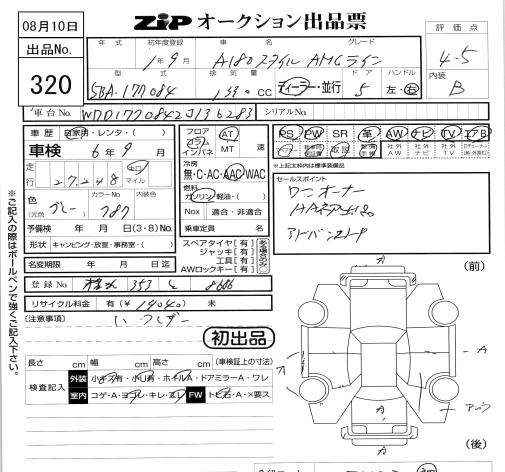 08月10日
ZiP オークション出品票
出品No.
320
評価点
4.5
内装
B
年式 初年度登録 車名 グレード
1年9月 A180スタイル AMGライン
型式 排気量 ドア ハンドル
5BA-177084 133 cc ディーラー・並行 5 左・右
車台No. WDD1770842J136283 シリアルNo.
車歴 自家用・レンタ・( )
車検 6年9月
走行 27,248 km マイル
色 (元色) グレー カラーNo. 787 内装色
予備検 年 月 日 (3・8) No.
形状 キャンピング・放宣・事務室・( )
名変期限 年 月 日迄
フロア コラム インパネ AT MT 速
冷房
無・C・AC・AAC・WAC
燃料
ガソリン・軽油・( )
Nox 適合・非適合
乗車定員 名
スペアタイヤ【有】
ジャッキ【有】
工具【有】
AWロックキー【有】
PS PW SR 革 AW ナビ TV エアB
取説 社外AW 社外ナビ 社外TV
↑上記文字枠は標準装備品
セールスポイント
ワンオーナー
登録No. 353 8686
リサイクル料金 有(¥ 19040) 未
(注意事項)
初出品
長さ cm 幅 cm 高さ cm (車検証上の寸法)
検査記入 外装 小キズ有・小U有・ホイルA・ドアミラーA・ワレ
室内 コゲ・A・ヨゴレ・キレ・スレ FW トビ石・A・×要ス
(前)
A
A
A
(後)
※ご記入の際はボールペンで強くご記入下さい。